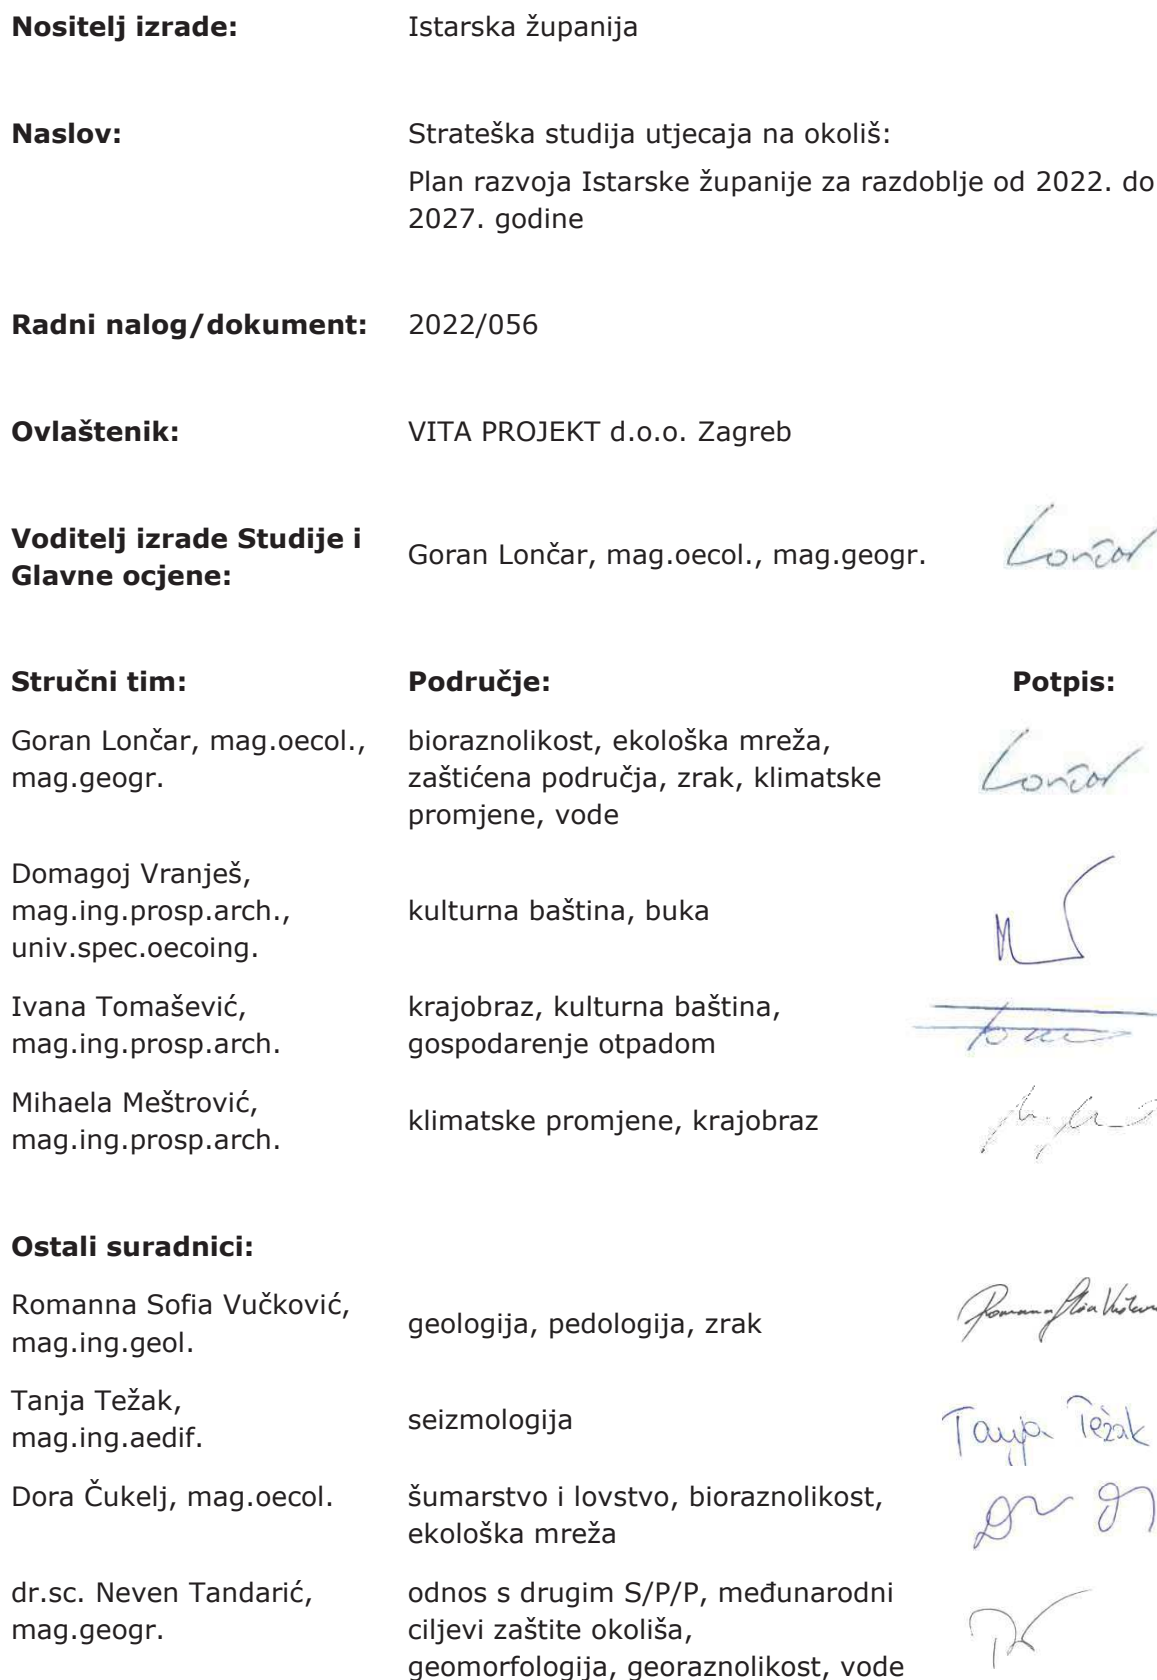 Nositelj izrade: Istarska županija
Naslov: Strateška studija utjecaja na okoliš:
Plan razvoja Istarske županije za razdoblje od 2022. do
2027. godine
Radni nalog/dokument: 2022/056
Ovlaštenik: VITA PROJEKT d.o.o. Zagreb
Voditelj izrade Studije i
Glavne ocjene:
Goran Lončar, mag.oecol., mag.geogr.
Lončar
Stručni tim: Područje: Potpis:
Goran Lončar, mag.oecol.,
mag.geogr.
bioraznolikost, ekološka mreža,
zaštićena područja, zrak, klimatske
promjene, vode
Lončar
Domagoj Vranješ,
mag.ing.prosp.arch.,
univ.spec.oecoing.
kulturna baština, buka
Ivana Tomašević,
mag.ing.prosp.arch.
krajobraz, kulturna baština,
gospodarenje otpadom
Mihaela Meštrović,
mag.ing.prosp.arch.
klimatske promjene, krajobraz
Ostali suradnici:
Romanna Sofia Vučković,
mag.ing.geol.
geologija, pedologija, zrak
Tanja Težak,
mag.ing.aedif.
seizmologija
Tanja Težak
Dora Čukelj, mag.oecol.
šumarstvo i lovstvo, bioraznolikost,
ekološka mreža
dr.sc. Neven Tandarić,
mag.geogr.
odnos s drugim S/P/P, međunarodni
ciljevi zaštite okoliša,
geomorfologija, georaznolikost, vode